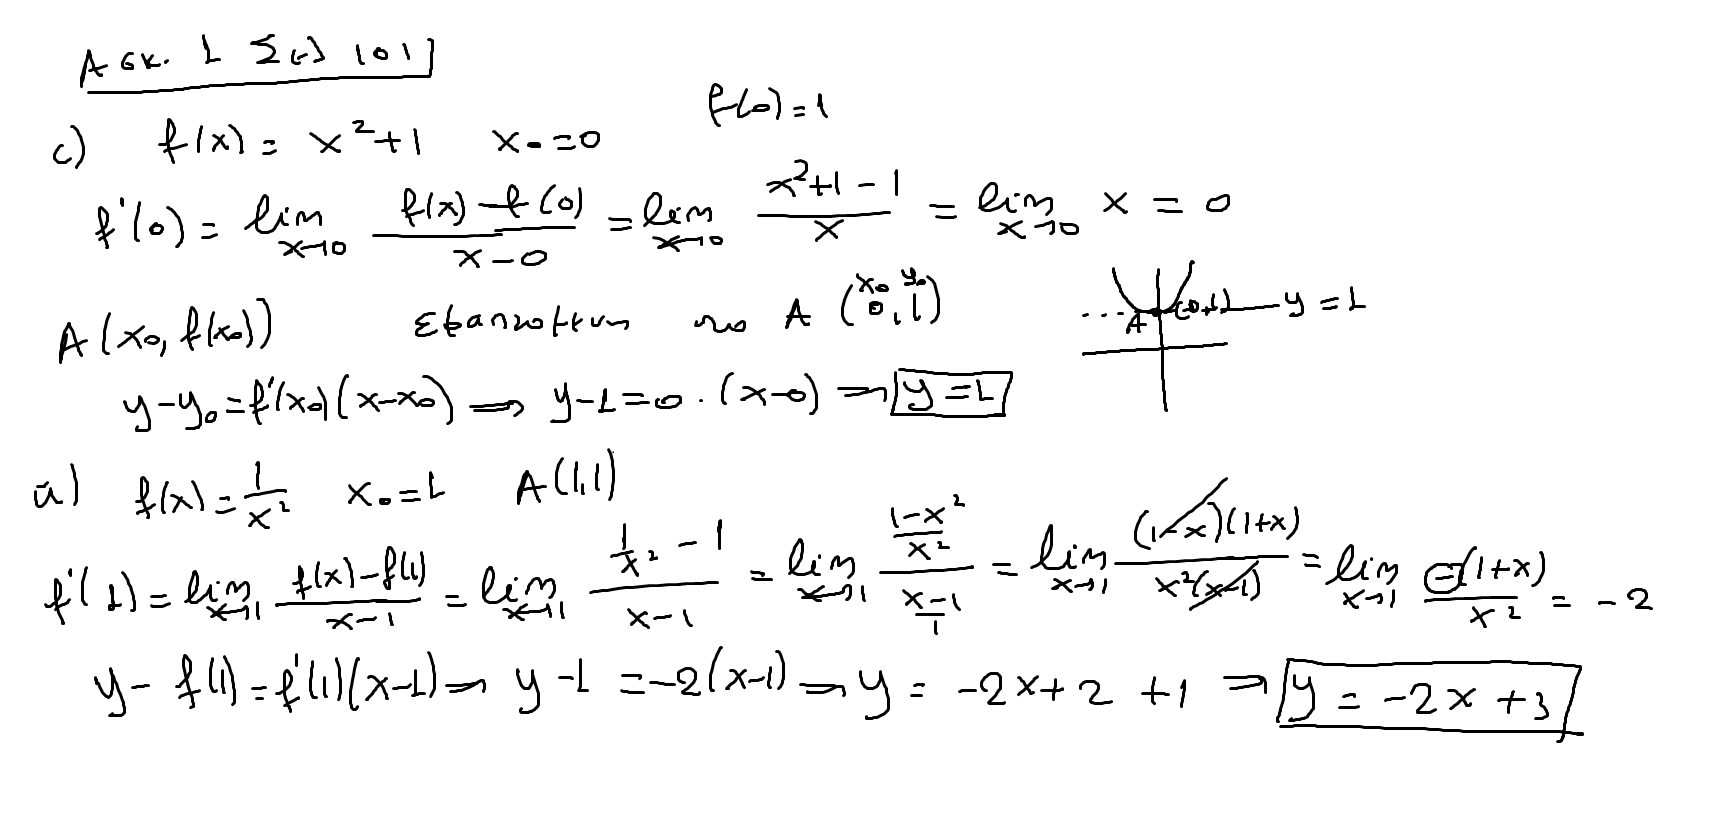 Ασκ. 1 Σελ 101
f(0)=1
i) f(x) = x²+1 x₀=0
f'(0) = lim x→0 (f(x)-f(0))/(x-0) = lim x→0 (x²+1-1)/x = lim x→0 x = 0
A(x₀, f(x₀)) Εφαπτομένη στο A(0,1) x₀ y₀
A (0,1) y=1
y-y₀=f'(x₀)(x-x₀) ⇒ y-1=0·(x-0) ⇒ y=1
ii) f(x)=1/x² x₀=1 A(1,1)
f'(1)=lim x→1 (f(x)-f(1))/(x-1) = lim x→1 (1/x² - 1)/(x-1) = lim x→1 ((1-x²)/x²)/((x-1)/1) = lim x→1 (1-x)(1+x)/(x²(x-1)) = lim x→1 -(1+x)/x² = -2
y-f(1)=f'(1)(x-1) ⇒ y-1=-2(x-1) ⇒ y = -2x+2+1 ⇒ y = -2x+3